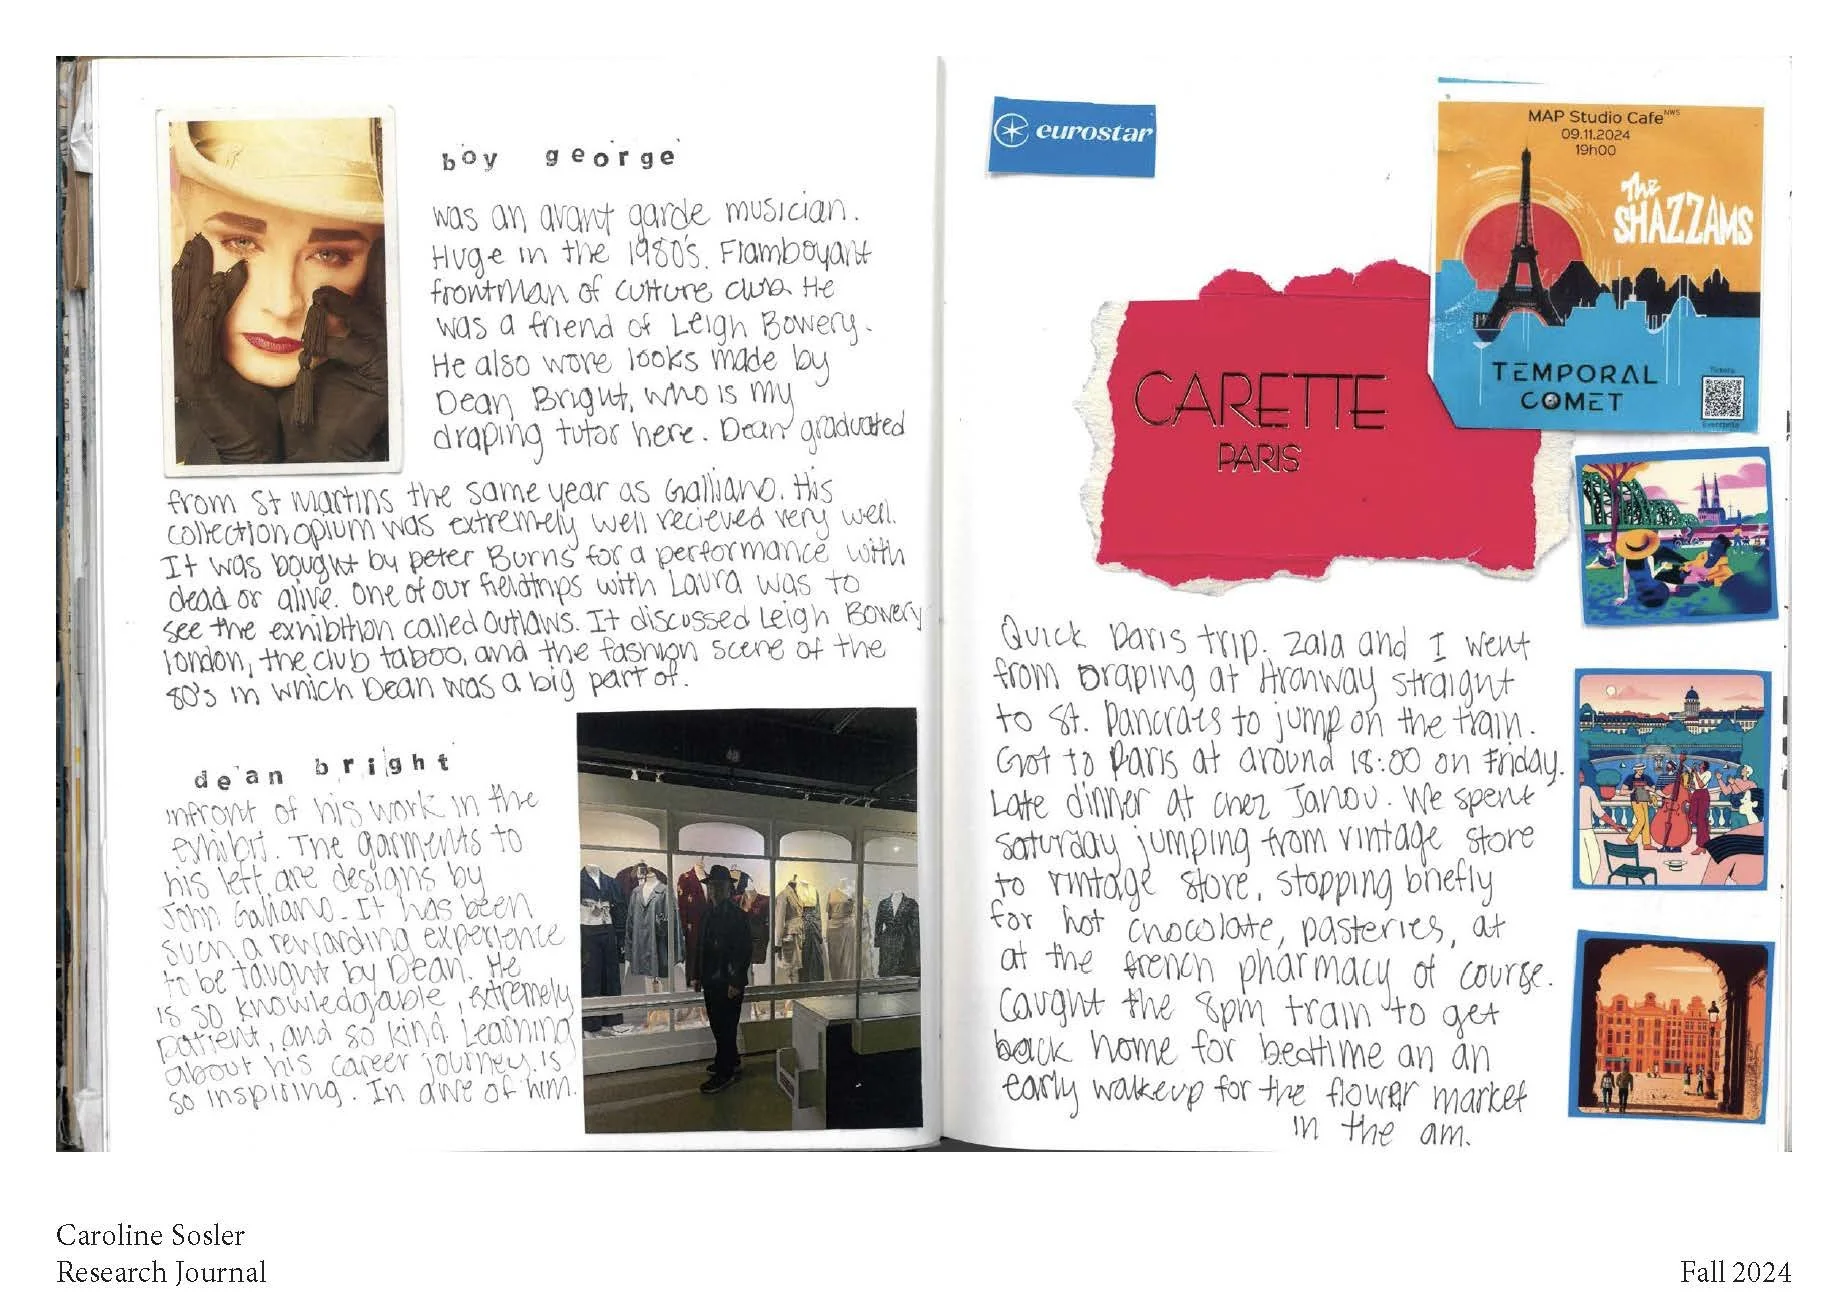 boy george
was an avant garde musician.
Huge in the 1980's. Flamboyant
frontman of culture club. He
was a friend of Leigh Bowery.
He also wore looks made by
Dean Bright, who is my
draping tutor here. Dean graduated
from St Martins the same year as Galliano. His
collection opium was extremely well recieved very well.
It was bought by peter Burns for a performance with
dead or alive. One of our fieldtrips with Laura was to
see the exhibition called Outlaws. It discussed Leigh Bowery
london, the club taboo, and the fashion scene of the
80's in which Dean was a big part of.
dean bright
infront of his work in the
exhibit. The garments to
his left are designs by
John Galliano. It has been
such a rewarding experience
to be taught by Dean. He
is so knowledgable, extremely
patient, and so kind. Learning
about his career journey is
so inspiring. In awe of him.
eurostar
MAP Studio Cafe NW5
09.11.2024
19h00
The
SHAZZAMS
TEMPORAL
COMET
Tickets
Eventbrite
CARETTE
PARIS
Quick Paris trip. Zala and I went
from Draping at Aronway straight
to St. Pancraes to jump on the train.
Got to Paris at around 18:00 on Friday.
Late dinner at chez Janou. We spent
saturday jumping from vintage store
to vintage store, stopping briefly
for hot chocolate, pasteries, at
at the french pharmacy of course.
Caught the 8pm train to get
back home for bedtime an an
early wakeup for the flower market
in the am.
Caroline Sosler
Research Journal
Fall 2024